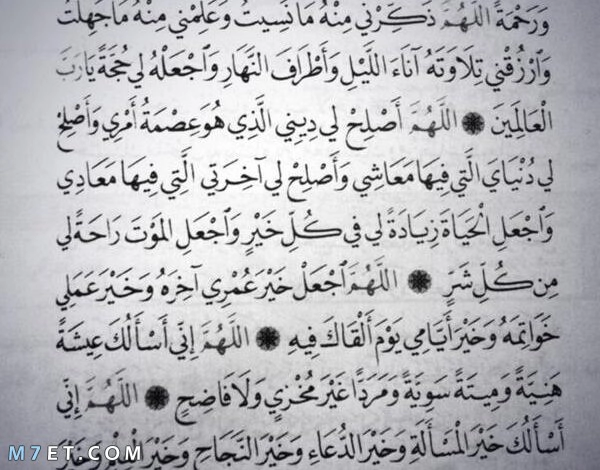 وَرَحْمَةً اللَّهُمَّ ذَكِّرْنِي مِنْهُ مَا نَسِيتُ وَعَلِّمْنِي مِنْهُ مَا جَهِلْتُ
وَٱرْزُقْنِي تِلَاوَتَهُ آنَاءَ اللَّيْلِ وَأَطْرَافَ النَّهَارِ وَٱجْعَلْهُ لِي حُجَّةً يَا رَبَّ
الْعَالَمِينَ ۞ اللَّهُمَّ أَصْلِحْ لِي دِينِي الَّذِي هُوَ عِصْمَةُ أَمْرِي وَأَصْلِحْ
لِي دُنْيَايَ الَّتِي فِيهَا مَعَاشِي وَأَصْلِحْ لِي آخِرَتِي الَّتِي فِيهَا مَعَادِي
وَٱجْعَلِ الْحَيَاةَ زِيَادَةً لِي فِي كُلِّ خَيْرٍ وَٱجْعَلِ الْمَوْتَ رَاحَةً لِي
مِن كُلِّ شَرٍّ ۞ اللَّهُمَّ ٱجْعَلْ خَيْرَ عُمْرِي آخِرَهُ وَخَيْرَ عَمَلِي
خَوَاتِمَهُ وَخَيْرَ أَيَّامِي يَوْمَ أَلْقَاكَ فِيهِ ۞ اللَّهُمَّ إِنِّي أَسْأَلُكَ عِيشَةً
هَنِيَّةً وَمِيتَةً سَوِيَّةً وَمَرَدًّا غَيْرَ مُخْزِي وَلَا فَاضِحٍ ۞ اللَّهُمَّ إِنِّي
أَسْأَلُكَ خَيْرَ الْمَسْأَلَةِ وَخَيْرَ الدُّعَاءِ وَخَيْرَ النَّجَاحِ وَخَيْرَ الْعِلْمِ وَخَيْرَ
M7ET.COM